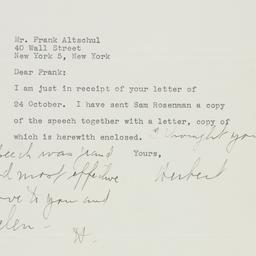 Mr. Frank Altschul
40 Wall Street
New York 5, New York
Dear Frank:
I am just in receipt of your letter of
24 October. I have sent Sam Rosenman a copy
of the speech together with a letter, copy of
which is herewith enclosed. I thought you
speech was grand
Yours,
d most effective
Herbert
ove to you and
elen-
H.